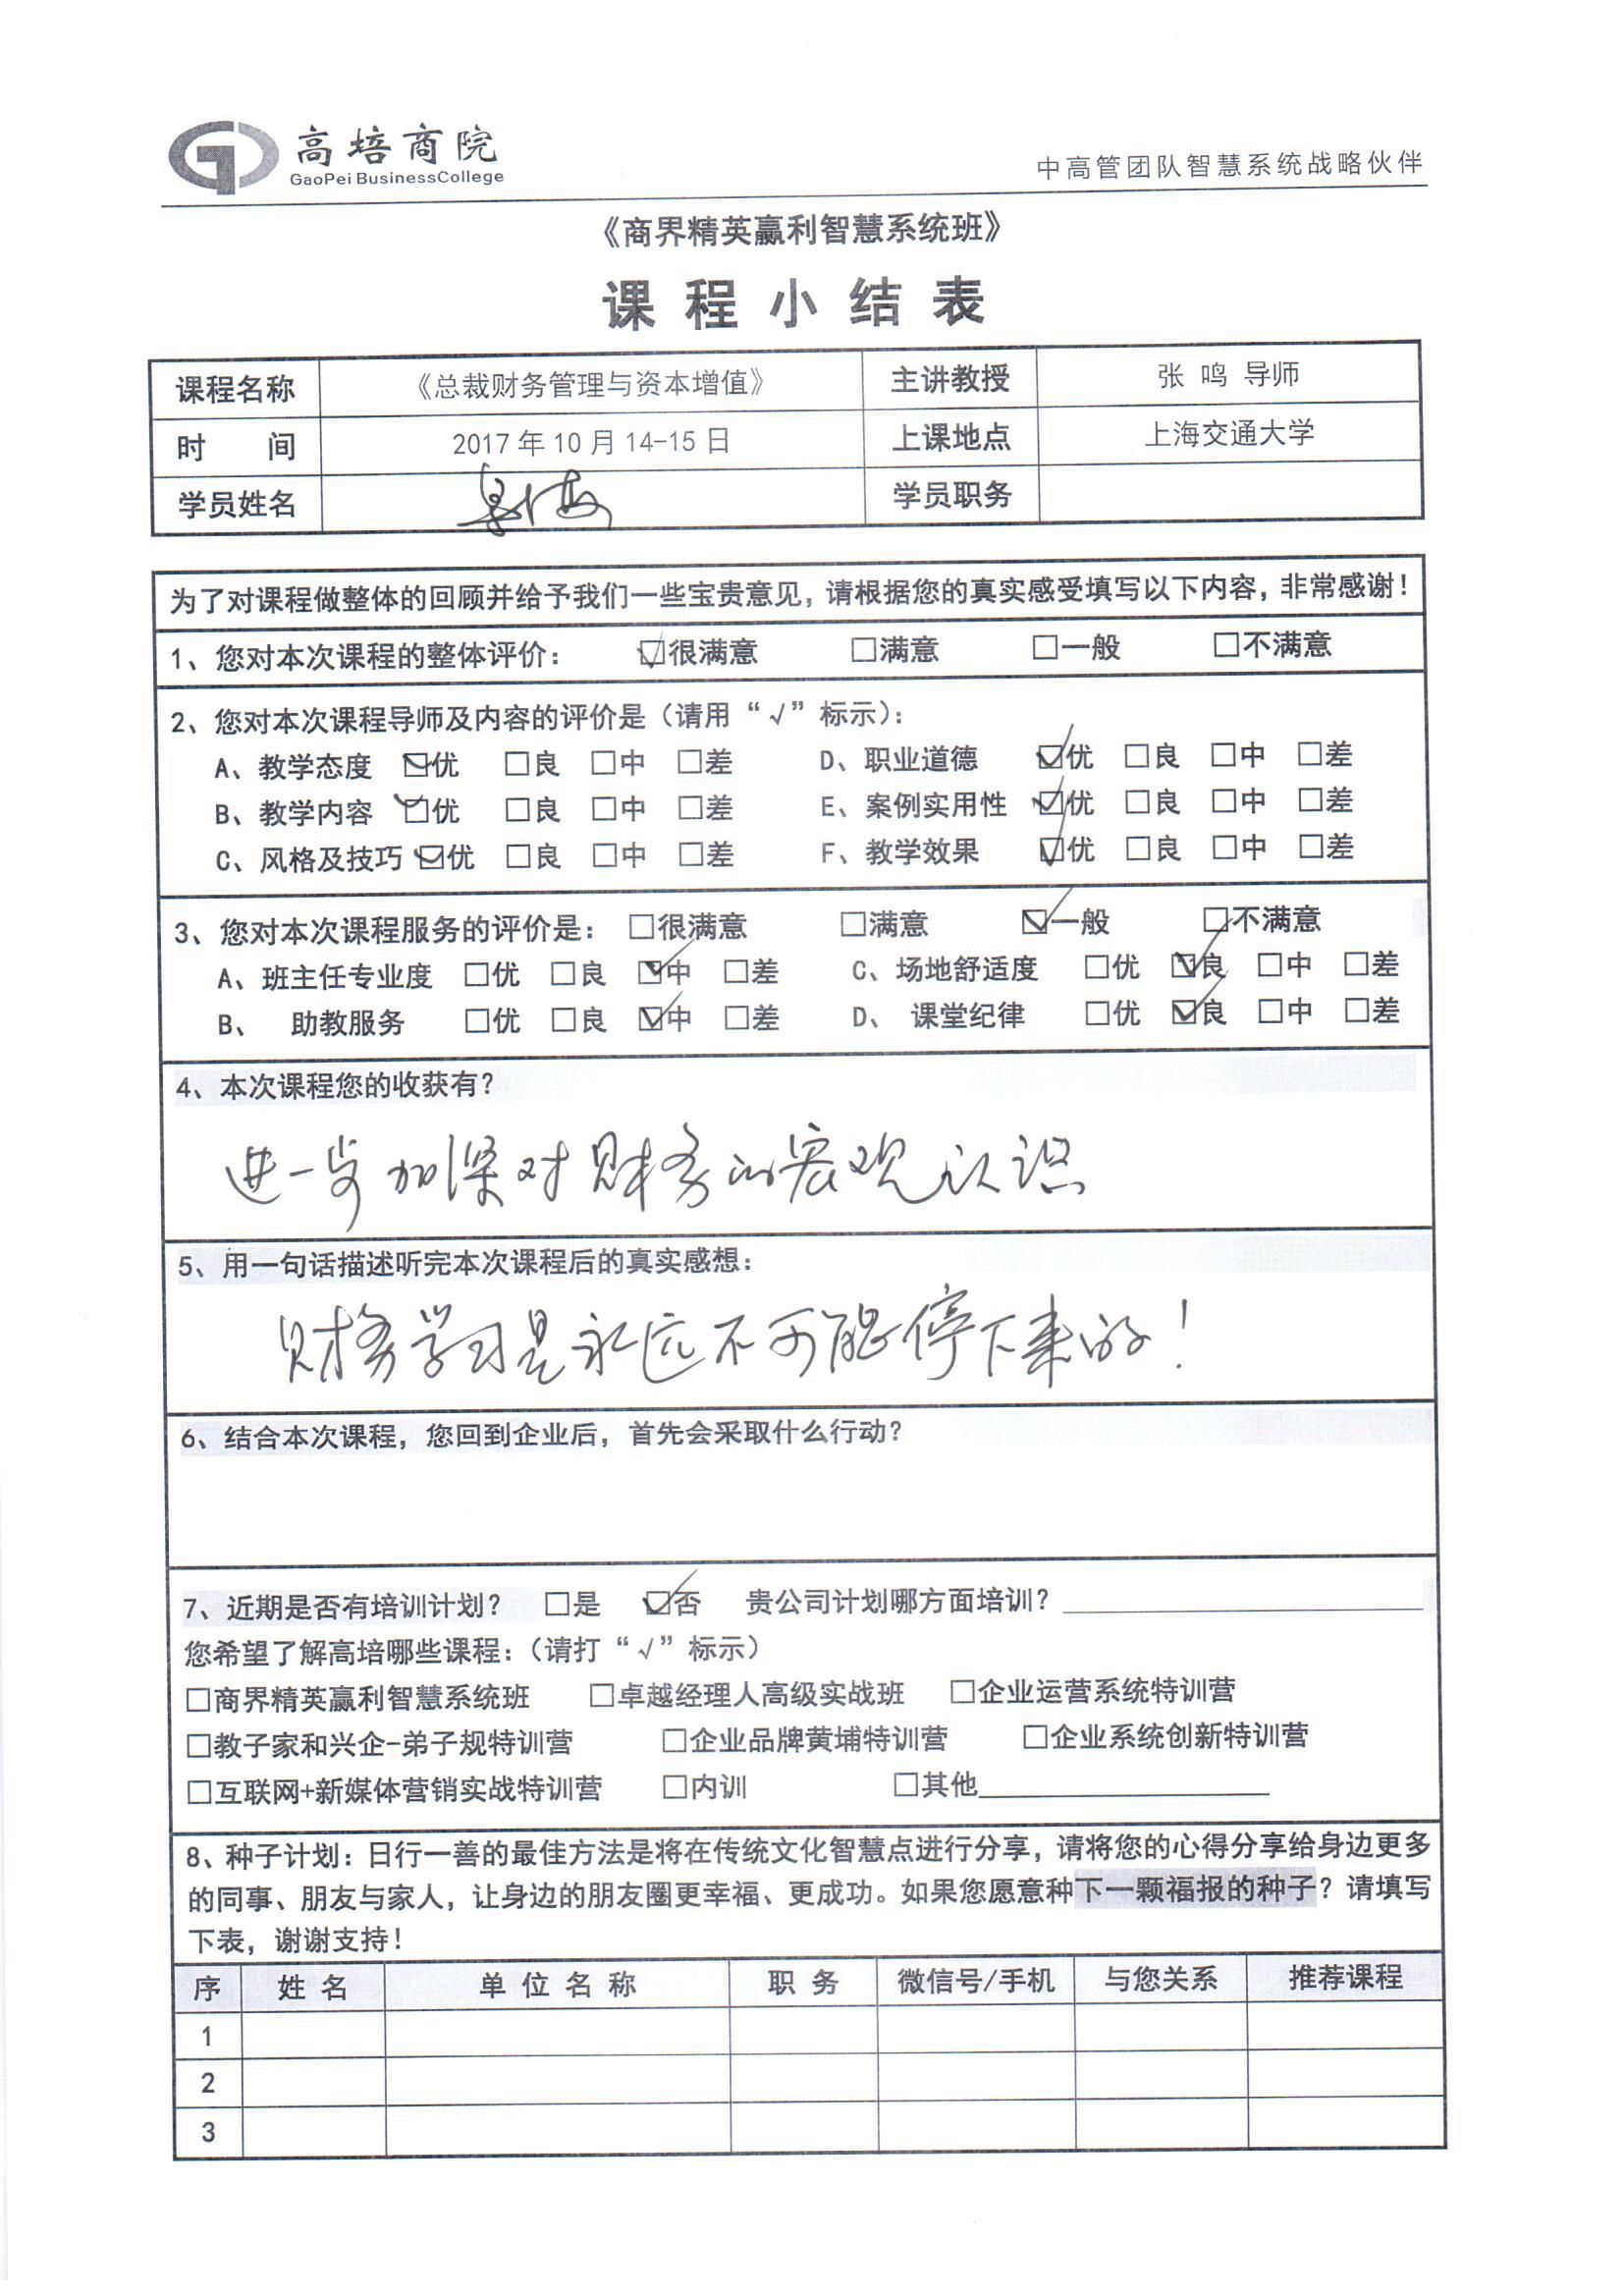 高培商院
GaoPei BusinessCollege
中高管团队智慧系统战略伙伴
《商界精英赢利智慧系统班》
课程小结表
课程名称 《总裁财务管理与资本增值》 主讲教授 张 鸣 导师
时 间 2017年10月14-15日 上课地点 上海交通大学
学员姓名 学员职务
为了对课程做整体的回顾并给予我们一些宝贵意见，请根据您的真实感受填写以下内容，非常感谢！
1、您对本次课程的整体评价： ☑很满意 □满意 □一般 □不满意
2、您对本次课程导师及内容的评价是（请用“√”标示）：
A、教学态度 ☑优 □良 □中 □差 D、职业道德 ☑优 □良 □中 □差
B、教学内容 ☑优 □良 □中 □差 E、案例实用性 ☑优 □良 □中 □差
C、风格及技巧 ☑优 □良 □中 □差 F、教学效果 ☑优 □良 □中 □差
3、您对本次课程服务的评价是： □很满意 □满意 ☑一般 □不满意
A、班主任专业度 □优 □良 ☑中 □差 C、场地舒适度 □优 ☑良 □中 □差
B、 助教服务 □优 □良 ☑中 □差 D、 课堂纪律 □优 ☑良 □中 □差
4、本次课程您的收获有？
进一步加深对财务的宏观认识
5、用一句话描述听完本次课程后的真实感想：
财务学习是永远不可能停下来的！
6、结合本次课程，您回到企业后，首先会采取什么行动？
7、近期是否有培训计划？ □是 ☑否 贵公司计划哪方面培训？
您希望了解高培哪些课程：（请打“√”标示）
□商界精英赢利智慧系统班 □卓越经理人高级实战班 □企业运营系统特训营
□教子家和兴企-弟子规特训营 □企业品牌黄埔特训营 □企业系统创新特训营
□互联网+新媒体营销实战特训营 □内训 □其他
8、种子计划：日行一善的最佳方法是将在传统文化智慧点进行分享，请将您的心得分享给身边更多
的同事、朋友与家人，让身边的朋友圈更幸福、更成功。如果您愿意种下一颗福报的种子？请填写
下表，谢谢支持！
序 姓 名 单 位 名 称 职 务 微信号/手机 与您关系 推荐课程
1
2
3